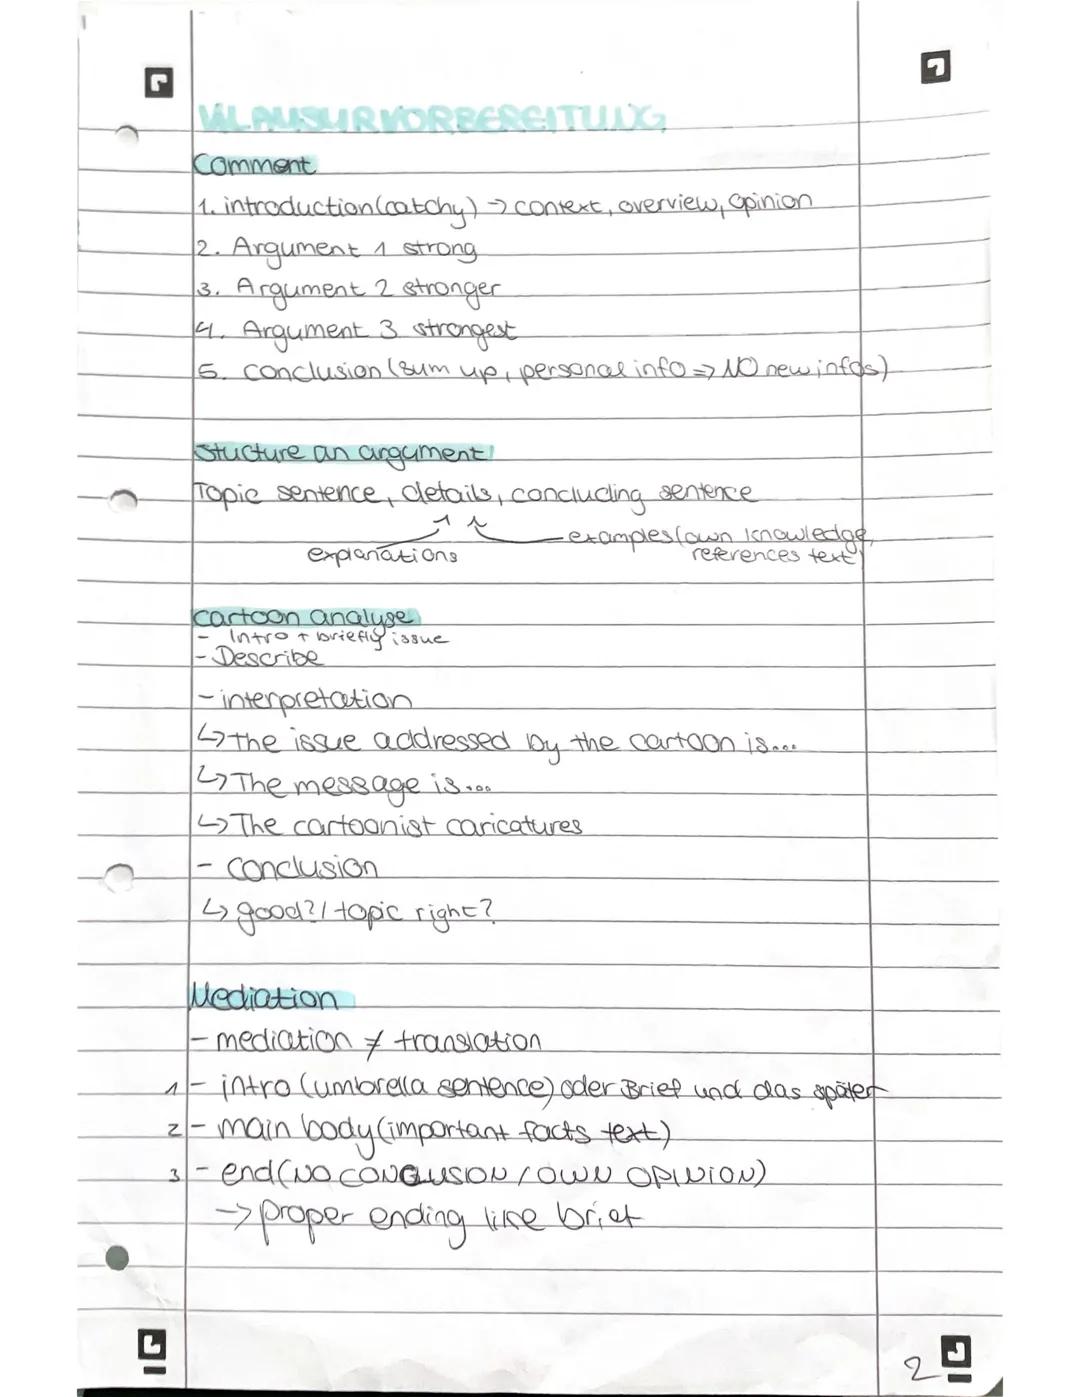 KLAUSURVORBEREITUNG
Comment
1. introduction (catchy) → context, overview, opinion
2. Argument 1 strong
3. Argument 2 stronger
4. Argument 3 strongest
5. conclusion (sum up, personal info => NO new infos)
Stucture an argument
Topic sentence, details, concluding sentence
explanations
examples (own knowledge,
references text)
cartoon analyse
- Intro + briefly issue
- Describe
- interpretation
↳ the issue addressed by the cartoon is...
↳ The message is...
↳ The cartoonist caricatures
- conclusion
↳ good? / topic right?
Mediation
- mediation ≠ translation
1 - intro (umbrella sentence) oder Brief und das später
2 - main body (important facts text)
3 - end (NO CONCLUSION / OWN OPINION)
→ proper ending like brief
2